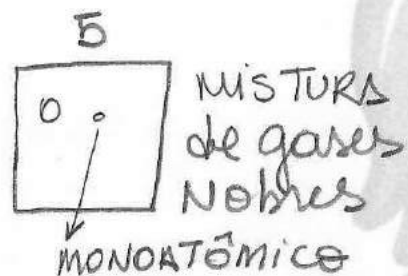 5
MISTURA
de gases
Nobres
MONOATÔMICO